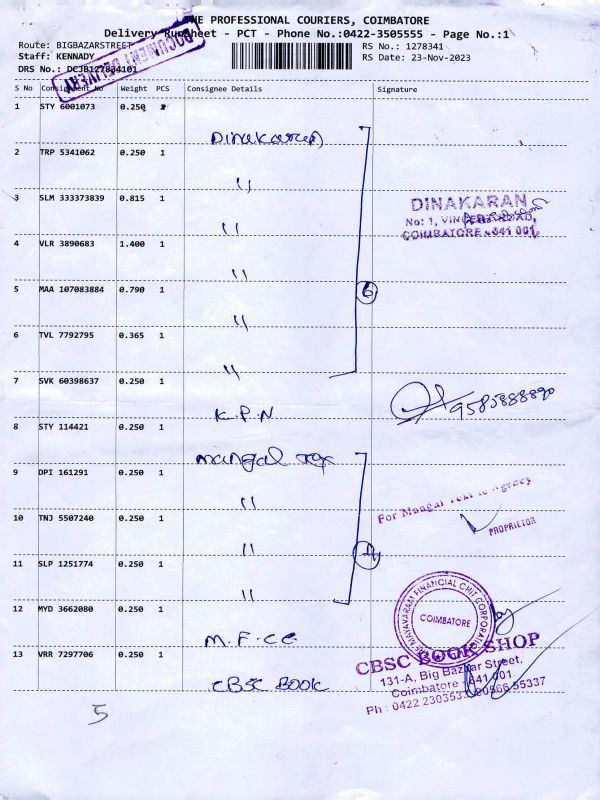 THE PROFESSIONAL COURIERS, COIMBATORE
Delivery Runsheet - PCT - Phone No.:0422-3505555 - Page No.:1
Route: BIGBAZARSTREET
RS No.: 1278341
Staff: KENNADY
RS Date: 23-Nov-2023
DRS No.: DCJB127834101
DOCUMENT DELIVERY
S No Consignment No Weight PCS Consignee Details Signature
1 STY 6001073 0.250
Dinakaran
2 TRP 5341062 0.250 1
"
3 SLM 333373839 0.815 1
DINAKARAN
No: 1,
COIMBATORE - 641 001.
"
4 VLR 3890683 1.400 1
"
5 MAA 107083884 0.790 1
6
"
6 TVL 7792795 0.365 1
"
7 SVK 60398637 0.250 1
K.P.N
9585888890
8 STY 114421 0.250 1
mangal Tex
9 DPI 161291 0.250 1
"
For Mangal Textile Agency
PROPRIETOR
10 TNJ 5507240 0.250 1
"
11 SLP 1251774 0.250 1
4
"
12 MYD 3662080 0.250 1
M.F.CC
FINANCIAL CHIT CORPORATION
COIMBATORE
13 VRR 7297706 0.250 1
CBSC BOOK
CBSC BOOK SHOP
131-A, Big Bazaar Street,
Coimbatore - 641 001.
Ph : 0422 55337
5